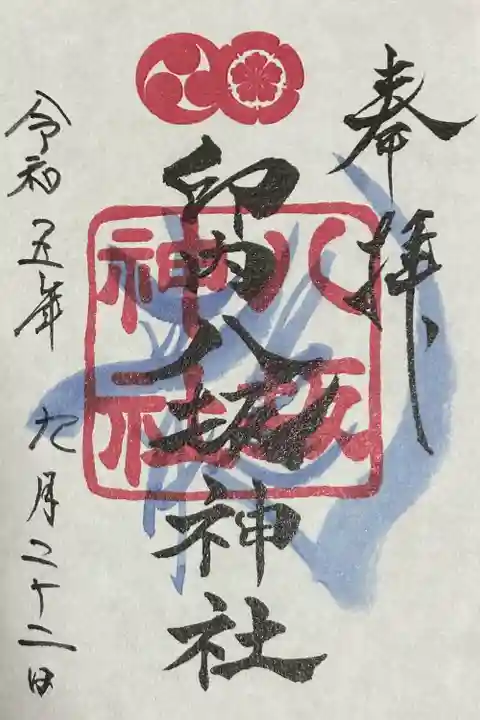 奉拝
印内八坂神社
八坂
神社
令和五年 九月二十二日